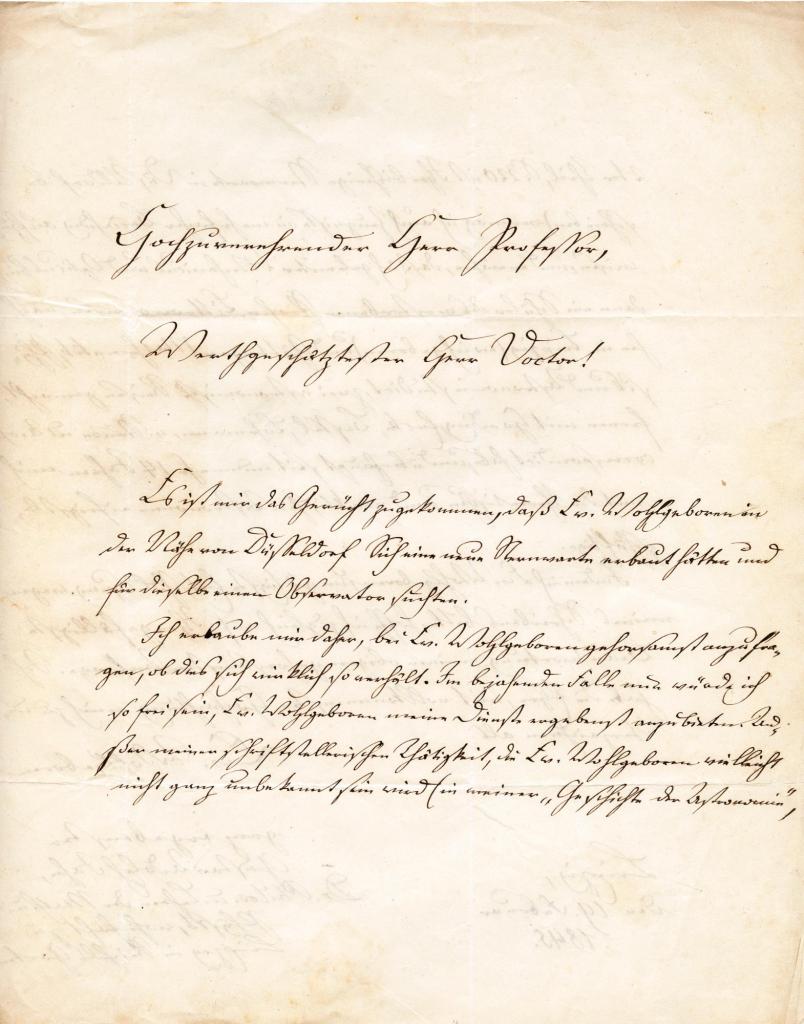 Hochzuverehrender Herr Professor,
Werthgeschätztester Herr Doctor!
Es ist mir das Gerücht zugekommen, daß Ew. Wohlgeboren in
der Nähe von Düsseldorf Sich eine neue Sternwarte erbaut hätten und
für dieselbe einen Observator suchten.
Ich erlaube mir daher, bei Ew. Wohlgeboren gehorsamst anzufra-
gen, ob dies sich wirklich so verhält. Im bejahenden Falle nun würde ich
so frei sein, Ew. Wohlgeboren meine Dienste ergebenst anzubieten. Au-
ßer meiner schriftstellerischen Thätigkeit, die Ew. Wohlgeboren vielleicht
nicht ganz unbekannt sein wird (in meiner „Geschichte der Astronomie",